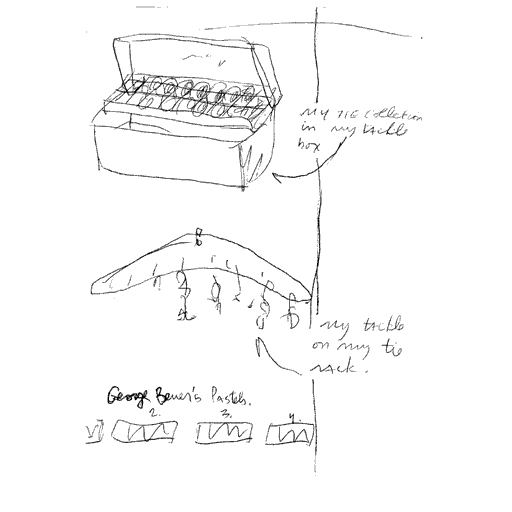 My TIE COllection
in my tackle
box
My tackle
on my tie
rack.
George Pastels.
2. 3. 4.